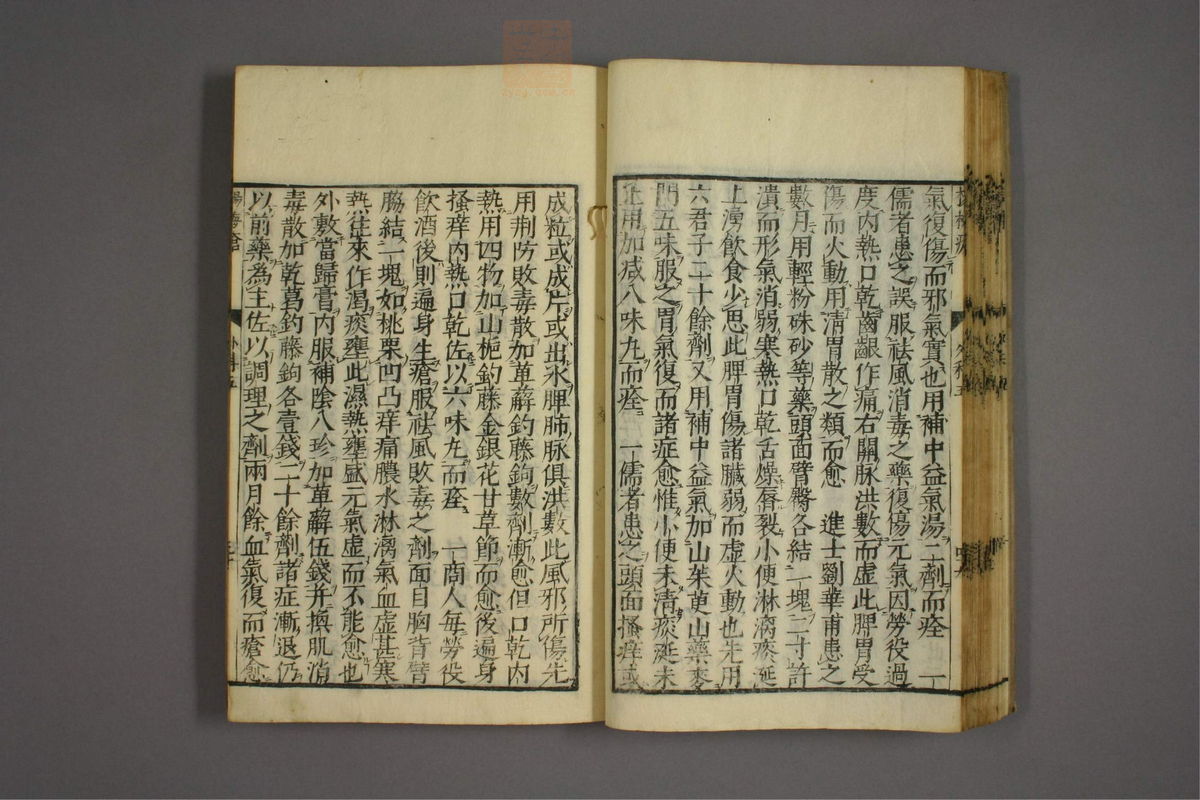 氣復傷而邪氣實也用補中益氣湯二劑而痊 一
儒者患之誤服祛風消毒之藥復傷元氣因勞役過
度內熱口乾齒齦作痛右關脉洪數而虛此脾胃受
傷而火動用清胃散之類而愈 進士劉華甫患之
數月用輕粉硃砂等藥頭面臂臀各結一塊二寸許
潰而形氣消弱寒熱口乾舌燥唇裂小便淋漓痰涎
上湧飲食少思此脾胃傷諸臟弱而虛火動也先用
六君子二十餘劑又用補中益氣加山茱萸山藥麥
門五味服之胃氣復而諸症愈惟小便未清痰涎未
止用加减八味丸而痊 一儒者患之頭面搔痒或
成粒或成片或出水脾肺脉俱洪數此風邪所傷先
用荆防敗毒散加萆薢釣藤鉤數劑漸愈但口乾內
熱用四物加山梔釣藤金銀花甘草節而愈後遍身
搔痒內熱口乾佐以六味丸而痊 一商人每勞役
飲酒後則遍身生瘡服祛風敗毒之劑面目胸背臂
脇結一塊如桃栗凹凸痒痛膿水淋漓氣血虛甚寒
熱往來作渴痰壅此濕熱壅盛元氣虛而不能愈也
外敷當歸膏內服補陰八珍加萆薢伍錢并換肌消
毒散加乾葛釣藤鉤各壹錢二十餘劑諸症漸退仍
以前藥為主佐以調理之劑兩月餘血氣復而瘡愈